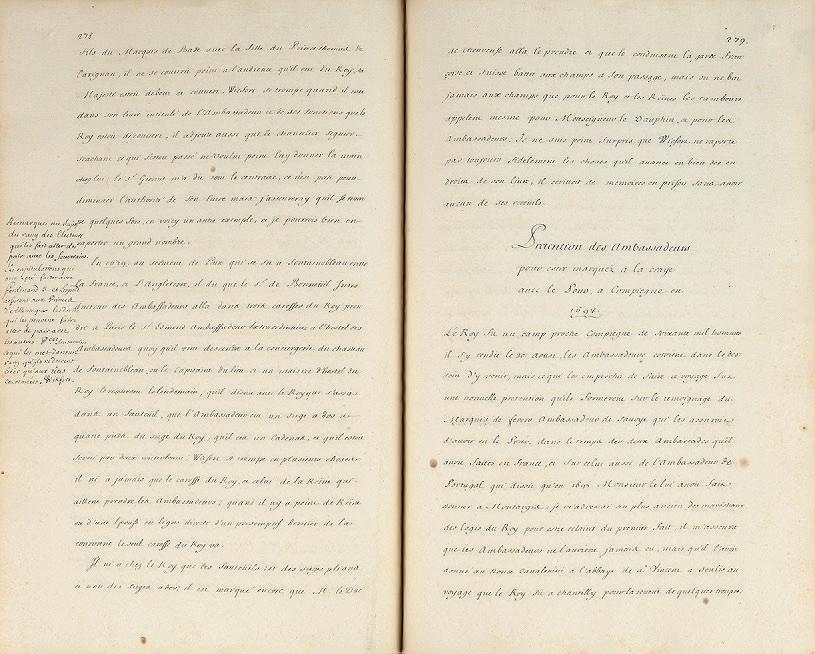 278
fils du Marquis de Bade avec la fille du Prince Thomas de
Carignan, il ne se couvrit point a l'audience qu'il eut du Roy, sa
Majesté estoit debout et couvert. Wicfort se trompe quand il met
dans son livre intitulé de l'Ambassadeur et de ses fonctions que le
Roy estoit découvert, il adjoute aussi que le chancelier Seguier
sachant ce qui s'étoit passé ne voulut point luy donner la main
chez luy. le Sr Girault m'a dit tout le contraire, ce n'est pas pour
diminuer l'authorité de son livre mais j'assureray qu'il se trom
pe quelques fois, en voicy un autre exemple, et je pourrois bien en
raporter un grand nombre.
Remarques au sujet
du rang des Electeurs
qu'il fait aller de
pair avec les souverains.
les capitulations que
Ferdinand 3 et Leopold
En 1629. au serment de Paix qui se fit a Fontainebleau entre
la France, et l'Angleterre, il dit que le Sr de Bonneuil Intro
ducteur des Ambassadeurs alla dans trois carosses du Roy pren
dre a Paris le Sr Edmond Ambassadeur Extraordinaire a l'hostel des
Ambassadeurs quoy qu'il vint descendre a la conciergerie du chasteau
de Fontainebleau, ou le Capitaine du lieu et un maistre d'Hostel du
Roy le receurent le lendemain, qu'il disna avec le Roy que s'assit
dans un fauteuil, que l'Ambassadeur eut un siege a dos de
quatre pieds du siege du Roy, qu'il eut un Cadenat, et qu'il estoit
servi par deux
Wicfort se trompe en plusieurs choses
il n'i a jamais que le carosse du Roy, et celui de la Reine qui
aillent prendre les Ambassadeurs; quand il n'y a point de Reine
ou d'une Epouse en ligne directe d'un presomptif heritier de la
couronne le seul carosse du Roy va.
Il n'i a chez le Roy que des fauteuils et des sieges pliants
et non des sieges a dos, il est marqué encore que M. le Duc
279.
de Chevreuse alla le prendre et que le conduisant la garde fran
çoise et suisse battit aux champs a son passage, mais on ne bat
jamais aux champs que pour le Roy et les Reines les tambours
appellent mesme pour Monseigneur le Dauphin, et pour les
Ambassadeurs. Je ne suis point surpris que Wicfort ne raporte
pas toujours fidelement les choses qu'il avance en bien des en
droits de son livre, il écrivoit de memoires en prison sans avoir
aucun de ses recueils.
Pretention des Ambassadeurs
pour estre marquez à la craye
avec le Pour, a Compiegne en
1698.
Le Roy fit un camp proche Compiegne de soixante mil hommes
il s'y rendit le 30 aout, les Ambassadeurs estoient dans le des
sein d'y venir, mais ce qui les empescha de faire ce voyage fut
une nouvelle pretention qu'ils formerent sur le temoignage du
Marquis de Ferero Ambassadeur de Savoye qui les assuroit
d'avoir eu le Pour, dans le temps des deux Ambassades qu'il
avoit faites en France, et sur celui aussi de l'Ambassadeur de
Portugal qui disoit qu'en 1692 Monsieur le lui avoit fait
donner a Montargis, je m'adressai au plus ancien des mareschaux
des logis du Roy pour estre eclairci du premier fait, il m'assura
que les Ambassadeurs ne l'avoient jamais eu, mais qu'il l'avoit
donné au Nonce Cavalerini à l'abbaye de St Vincent a Senlis au
voyage que le Roy fit a Chantilly pour la reveue de quelques troupes.